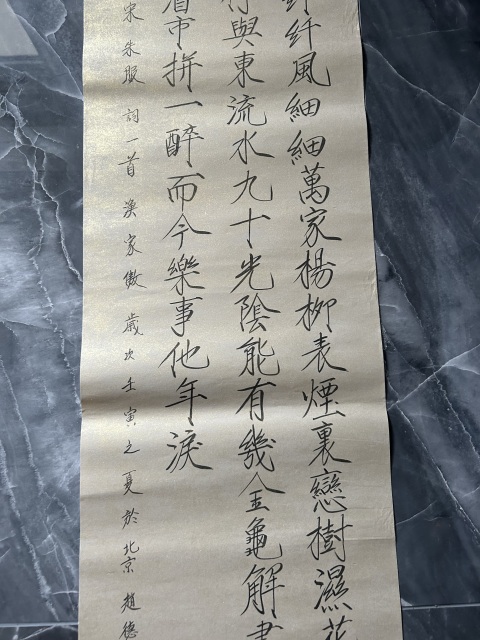 纤風細細萬家楊柳青煙裏戀樹濕花
付與東流水九十光陰能有幾金龜解
市拼一醉而今樂事他年淚
宋朱服詞一首漁家傲歲次壬寅之夏於北京趙德